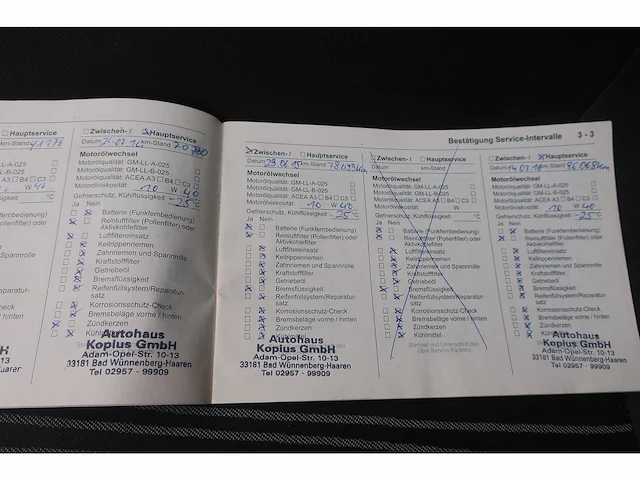 Bestätigung Service-Intervalle 3 - 3
Hauptservice
km-Stand
LL-A-025
LL-B-025
A3 B4 C3
W 40
üssigkeit
nkfernbedienung)
filter) oder
nrolle
eparatur-
s-Check
ne / hinten
3-13
rg-Haaren
Zwischen- / Hauptservice
Datum km-Stand
Motorölwechsel
Motorölqualität: GM-LL-A-025
GM-LL-B-025
Motorölqualität: ACEA A3 B4 C3
Motorölviskosität: 10 W 40
Gefrierschutz, Kühlflüssigkeit -25 °C
Ja Nein
Batterie (Funkfernbedienung)
Reinluftfilter (Pollenfilter) oder
Aktivkohlefilter
Luftfiltereinsatz
Keilrippenriemen
Zahnriemen und Spannrolle
Kraftstofffilter
Getriebeöl
Bremsflüssigkeit
Reifenfüllsystem/Reparatur-
satz
Korrosionsschutz-Check
Bremsbeläge vorne / hinten
Zündkerzen
Autohaus
Koplus GmbH
Adam-Opel-Str. 10-13
33181 Bad Wünnenberg-Haaren
Tel 02957 - 99909
Zwischen- / Hauptservice
Datum 29.06.15 km-Stand
Motorölwechsel
Motorölqualität: GM-LL-A-025
GM-LL-B-025
Motorölqualität: ACEA A3 B4 C3
Motorölviskosität: 10 W 40
Gefrierschutz, Kühlflüssigkeit -25 °C
Ja Nein
Batterie (Funkfernbedienung)
Reinluftfilter (Pollenfilter) oder
Aktivkohlefilter
Luftfiltereinsatz
Keilrippenriemen
Zahnriemen und Spannrolle
Kraftstofffilter
Getriebeöl
Bremsflüssigkeit
Reifenfüllsystem/Reparatur-
satz
Korrosionsschutz-Check
Bremsbeläge vorne / hinten
Zündkerzen
Autohaus
Koplus GmbH
Adam-Opel-Str. 10-13
33181 Bad Wünnenberg-Haaren
Tel 02957 - 99909
Zwischen- / Hauptservice
Datum
km-Stand
Motorölwechsel
Motorölqualität: GM-LL-A-025
GM-LL-B-025
Motorölqualität: ACEA A3 B4 C3
Motorölviskosität: W
Gefrierschutz, Kühlflüssigkeit °C
Ja Nein
Batterie (Funkfernbedienung)
Reinluftfilter (Pollenfilter) oder
Aktivkohlefilter
Luftfiltereinsatz
Keilrippenriemen
Zahnriemen und Spannrolle
Kraftstofffilter
Getriebeöl
Bremsflüssigkeit
Reifenfüllsystem/Reparatur-
satz
Korrosionsschutz-Check
Bremsbeläge vorne / hinten
Zündkerzen
Kühlmittel
Stempel und Unterschrift des
Opel Service Partners
Zwischen- / Hauptservice
Datum km-Stand 86068km
Motorölwechsel
Motorölqualität: GM-LL-A-025
GM-LL-B-025
Motorölqualität: ACEA A3 B4 C3
Motorölviskosität: 10 W 40
Gefrierschutz, Kühlflüssigkeit -25 °C
Ja Nein
Batterie (Funkfernbedienung)
Reinluftfilter (Pollenfilter) oder
Aktivkohlefilter
Luftfiltereinsatz
Keilrippenriemen
Zahnriemen und Spannrolle
Kraftstofffilter
Getriebeöl
Bremsflüssigkeit
Reifenfüllsystem/Reparatur-
satz
Korrosionsschutz-Check
Bremsbeläge vorne / hinten
Zündkerzen
Autohaus
Koplus GmbH
Adam-Opel-Str. 10-13
33181 Bad Wünnenberg-Haaren
Tel 02957 - 99909